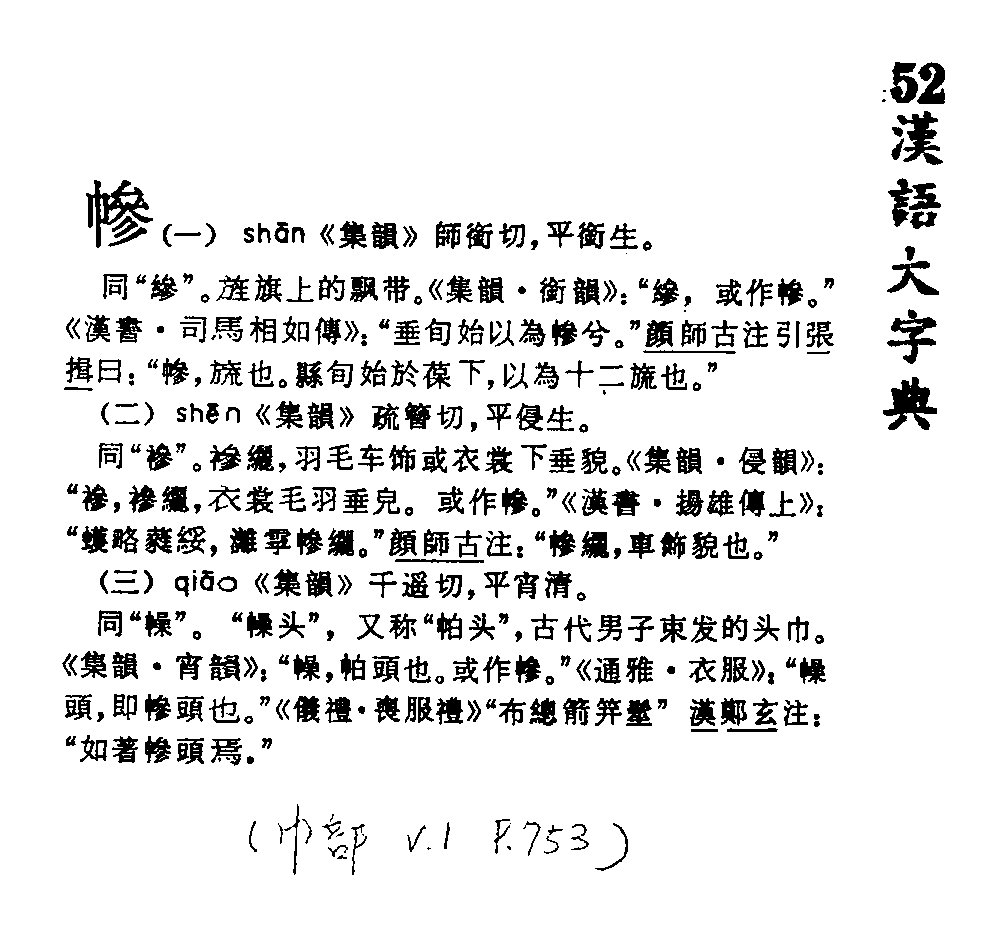 52漢語大字典
幓(一) shān《集韻》師銜切,平銜生。
同“縿”。旌旗上的飘带。《集韻·銜韻》:“縿，或作幓。”
《漢書·司馬相如傳》:“垂旬始以為幓兮。”顔師古注引張
揖曰:“幓,旒也。縣旬始於葆下,以為十二旒也。”
(二) shēn《集韻》疏簪切,平侵生。
同“襂”。襂纚,羽毛车饰或衣裳下垂貌。《集韻·侵韻》:
“襂,襂纚,衣裳毛羽垂皃。或作幓。”《漢書·揚雄傳上》:
“蠖略蕤綏,灕虖幓纚。”顔師古注:“幓纚,車飾貌也。”
(三) qiāo《集韻》千遥切,平宵清。
同“幧”。“幧头”，又称“帕头”,古代男子束发的头巾。
《集韻·宵韻》:“幧,帕頭也。或作幓。”《通雅·衣服》:“幧
頭,即幓頭也。”《儀禮·喪服禮》“布總箭笄髽” 漢鄭玄注:
“如著幓頭焉。”
(巾部 v.1 P.753)